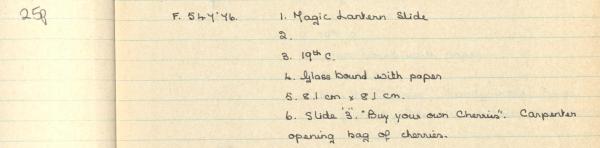 25p
F. 54Y'Y6.
1. Magic Lantern Slide
2.
3. 19th C.
4. Glass bound with paper
5. 8.1 cm x 8.1 cm.
6. Slide '3'. "Buy your own Cherries". Carpenter
opening bag of cherries.